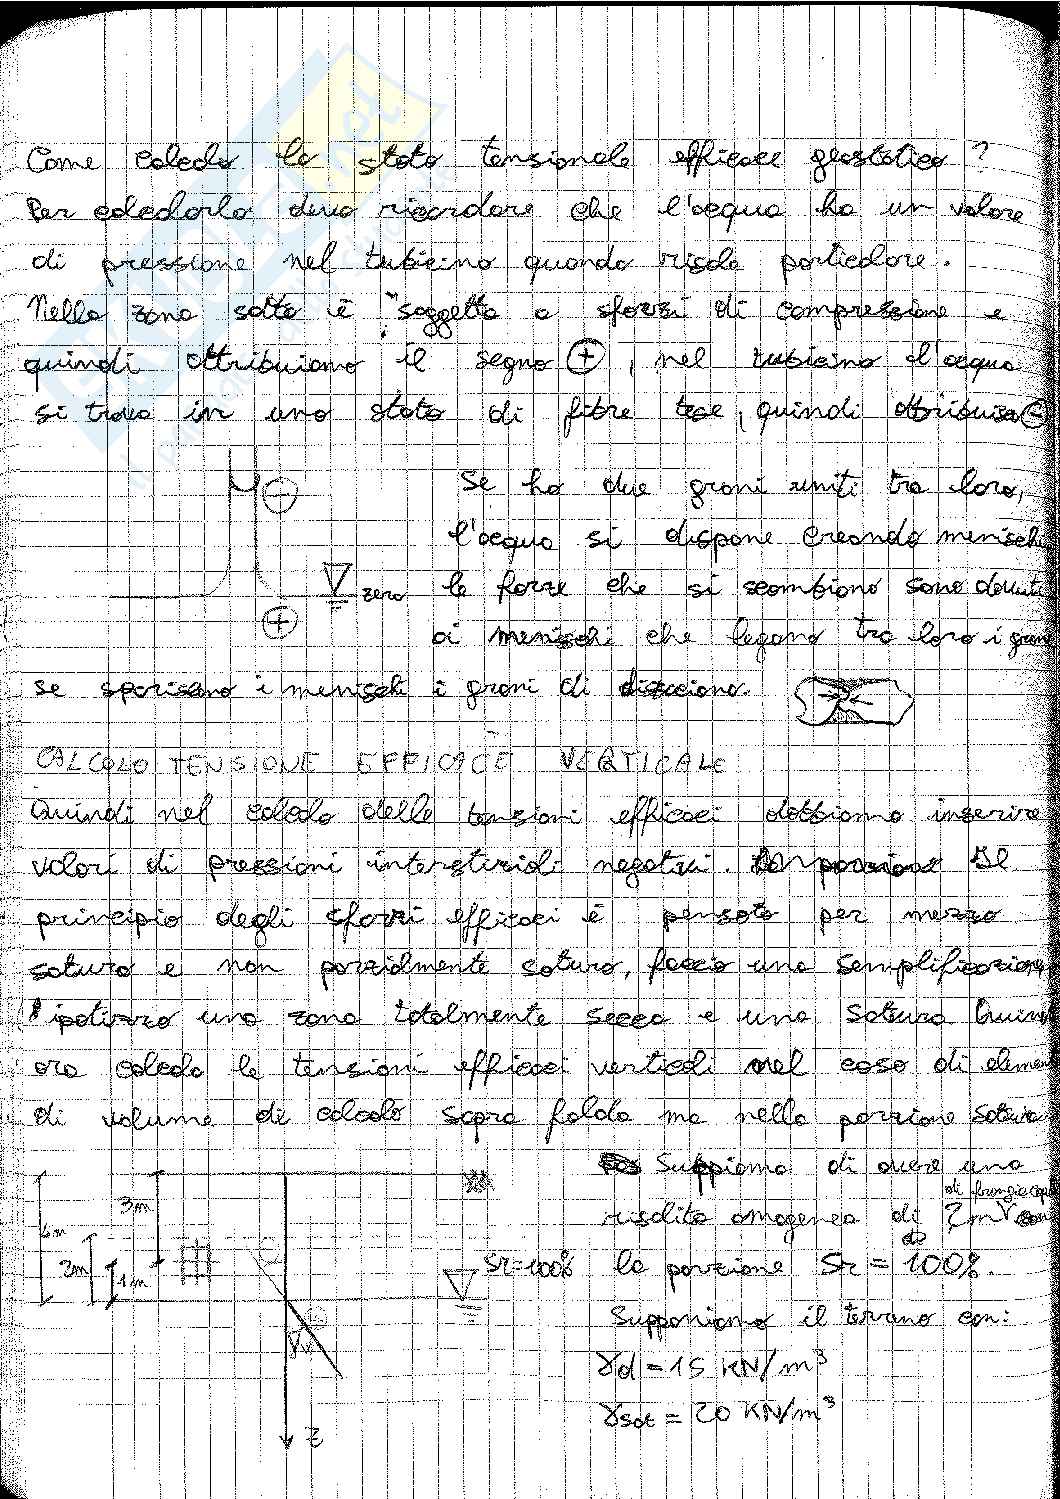 Come calcolo lo stato tensionale efficace geostatico?
Per calcolarlo devo ricordare che l'acqua ha un valore
di pressione nel tubicino quando risale particolare.
Nella zona sotto è "soggetta a sforzi di compressione e
quindi attribuiamo il segno ⊕, nel tubicino l'acqua
si trova in uno stato di fibre tese, quindi attribuisco ⊖
Se ho due grani uniti tra loro,
l'acqua si dispone creando menischi
zero le forze che si scambiono sono dovute
ai menischi che legano tra loro i grani
se spariscono i menischi i grani di
CALCOLO TENSIONE EFFICACE VERTICALE
Quindi nel calcolo delle tensioni efficaci dobbiamo inserire
valori di pressioni interstiziali negativi. Il
principio degli sforzi efficaci è pensato per mezzo
saturo e non parzialmente saturo, faccio una semplificazione
ipotizzo una zona totalmente secca e una satura Quindi
ora calcolo le tensioni efficaci verticali nel caso di elemento
di volume di calcolo sopra falda ma nella porzione satura
Suppiamo di avere una
di frangia cap
risalita omogenea di 2m con
la porzione Sr = 100%.
Supponiamo il terreno con:
γd = 15 KN/m³
γsat = 20 KN/m³
3m
2m
1m
Sr=100%
z